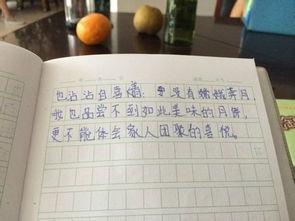 也沾沾自喜着:要没有嫦娥奔月,
我也品尝不到如此美味的月饼,
更不能体会家人团聚的喜悦。